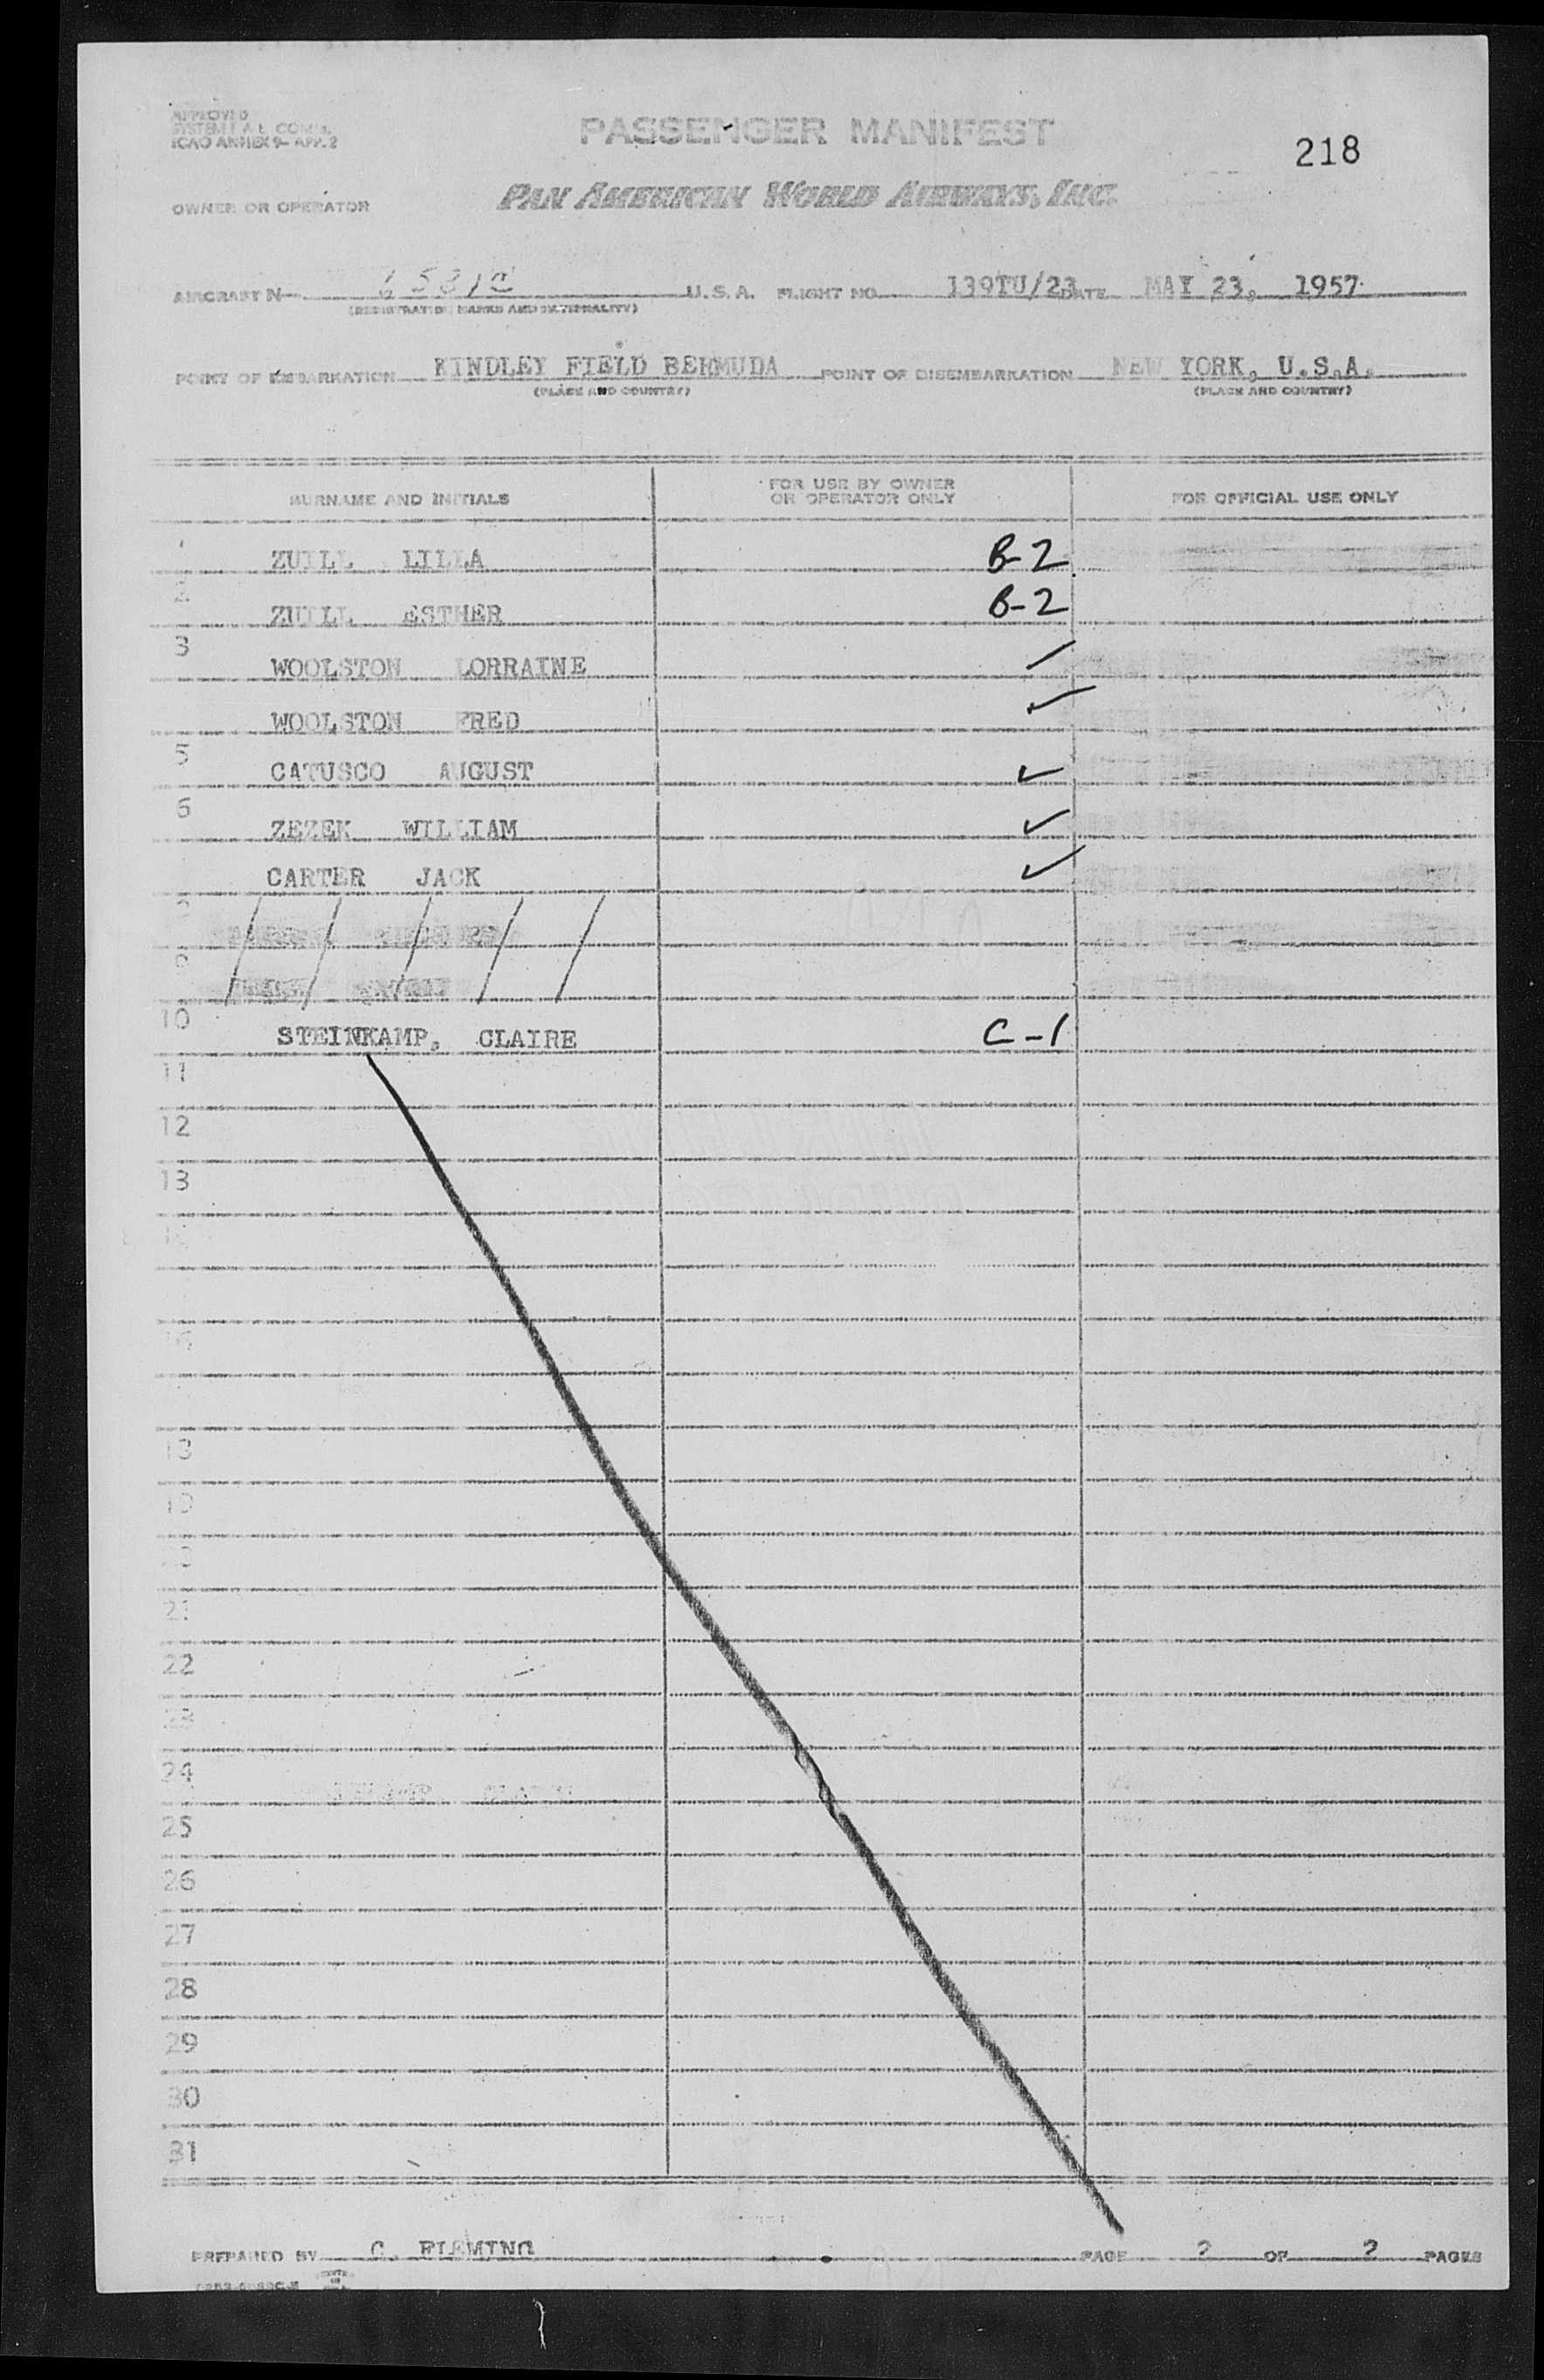 APPROVED
SYSTEM F.A.L. COMM.
ICAO ANNEX 9- APP. 2
PASSENGER MANIFEST
218
PAN AMERICAN WORLD AIRWAYS, INC.
OWNER OR OPERATOR
AIRCRAFT N- U.S.A. FLIGHT NO. 139TU/23 DATE MAY 23, 1957
(REGISTRATION MARKS AND NATIONALITY)
POINT OF EMBARKATION KINDLEY FIELD BERMUDA POINT OF DISEMBARKATION NEW YORK, U.S.A.
(PLACE AND COUNTRY) (PLACE AND COUNTRY)
SURNAME AND INITIALS FOR USE BY OWNER OR OPERATOR ONLY FOR OFFICIAL USE ONLY
ZUILL LILLA B-2
2 ZUILL ESTHER B-2
3 WOOLSTON LORRAINE ✓
WOOLSTON FRED ✓
5 CATUSCO AUGUST ✓
6 ZEZEK WILLIAM ✓
CARTER JACK ✓
9
10 STEINKAMP, CLAIRE C-1
11
12
13
18
19
21
22
23
24
25
26
27
28
29
30
31
PREPARED BY C. FLEMING PAGE 2 OF 2 PAGES